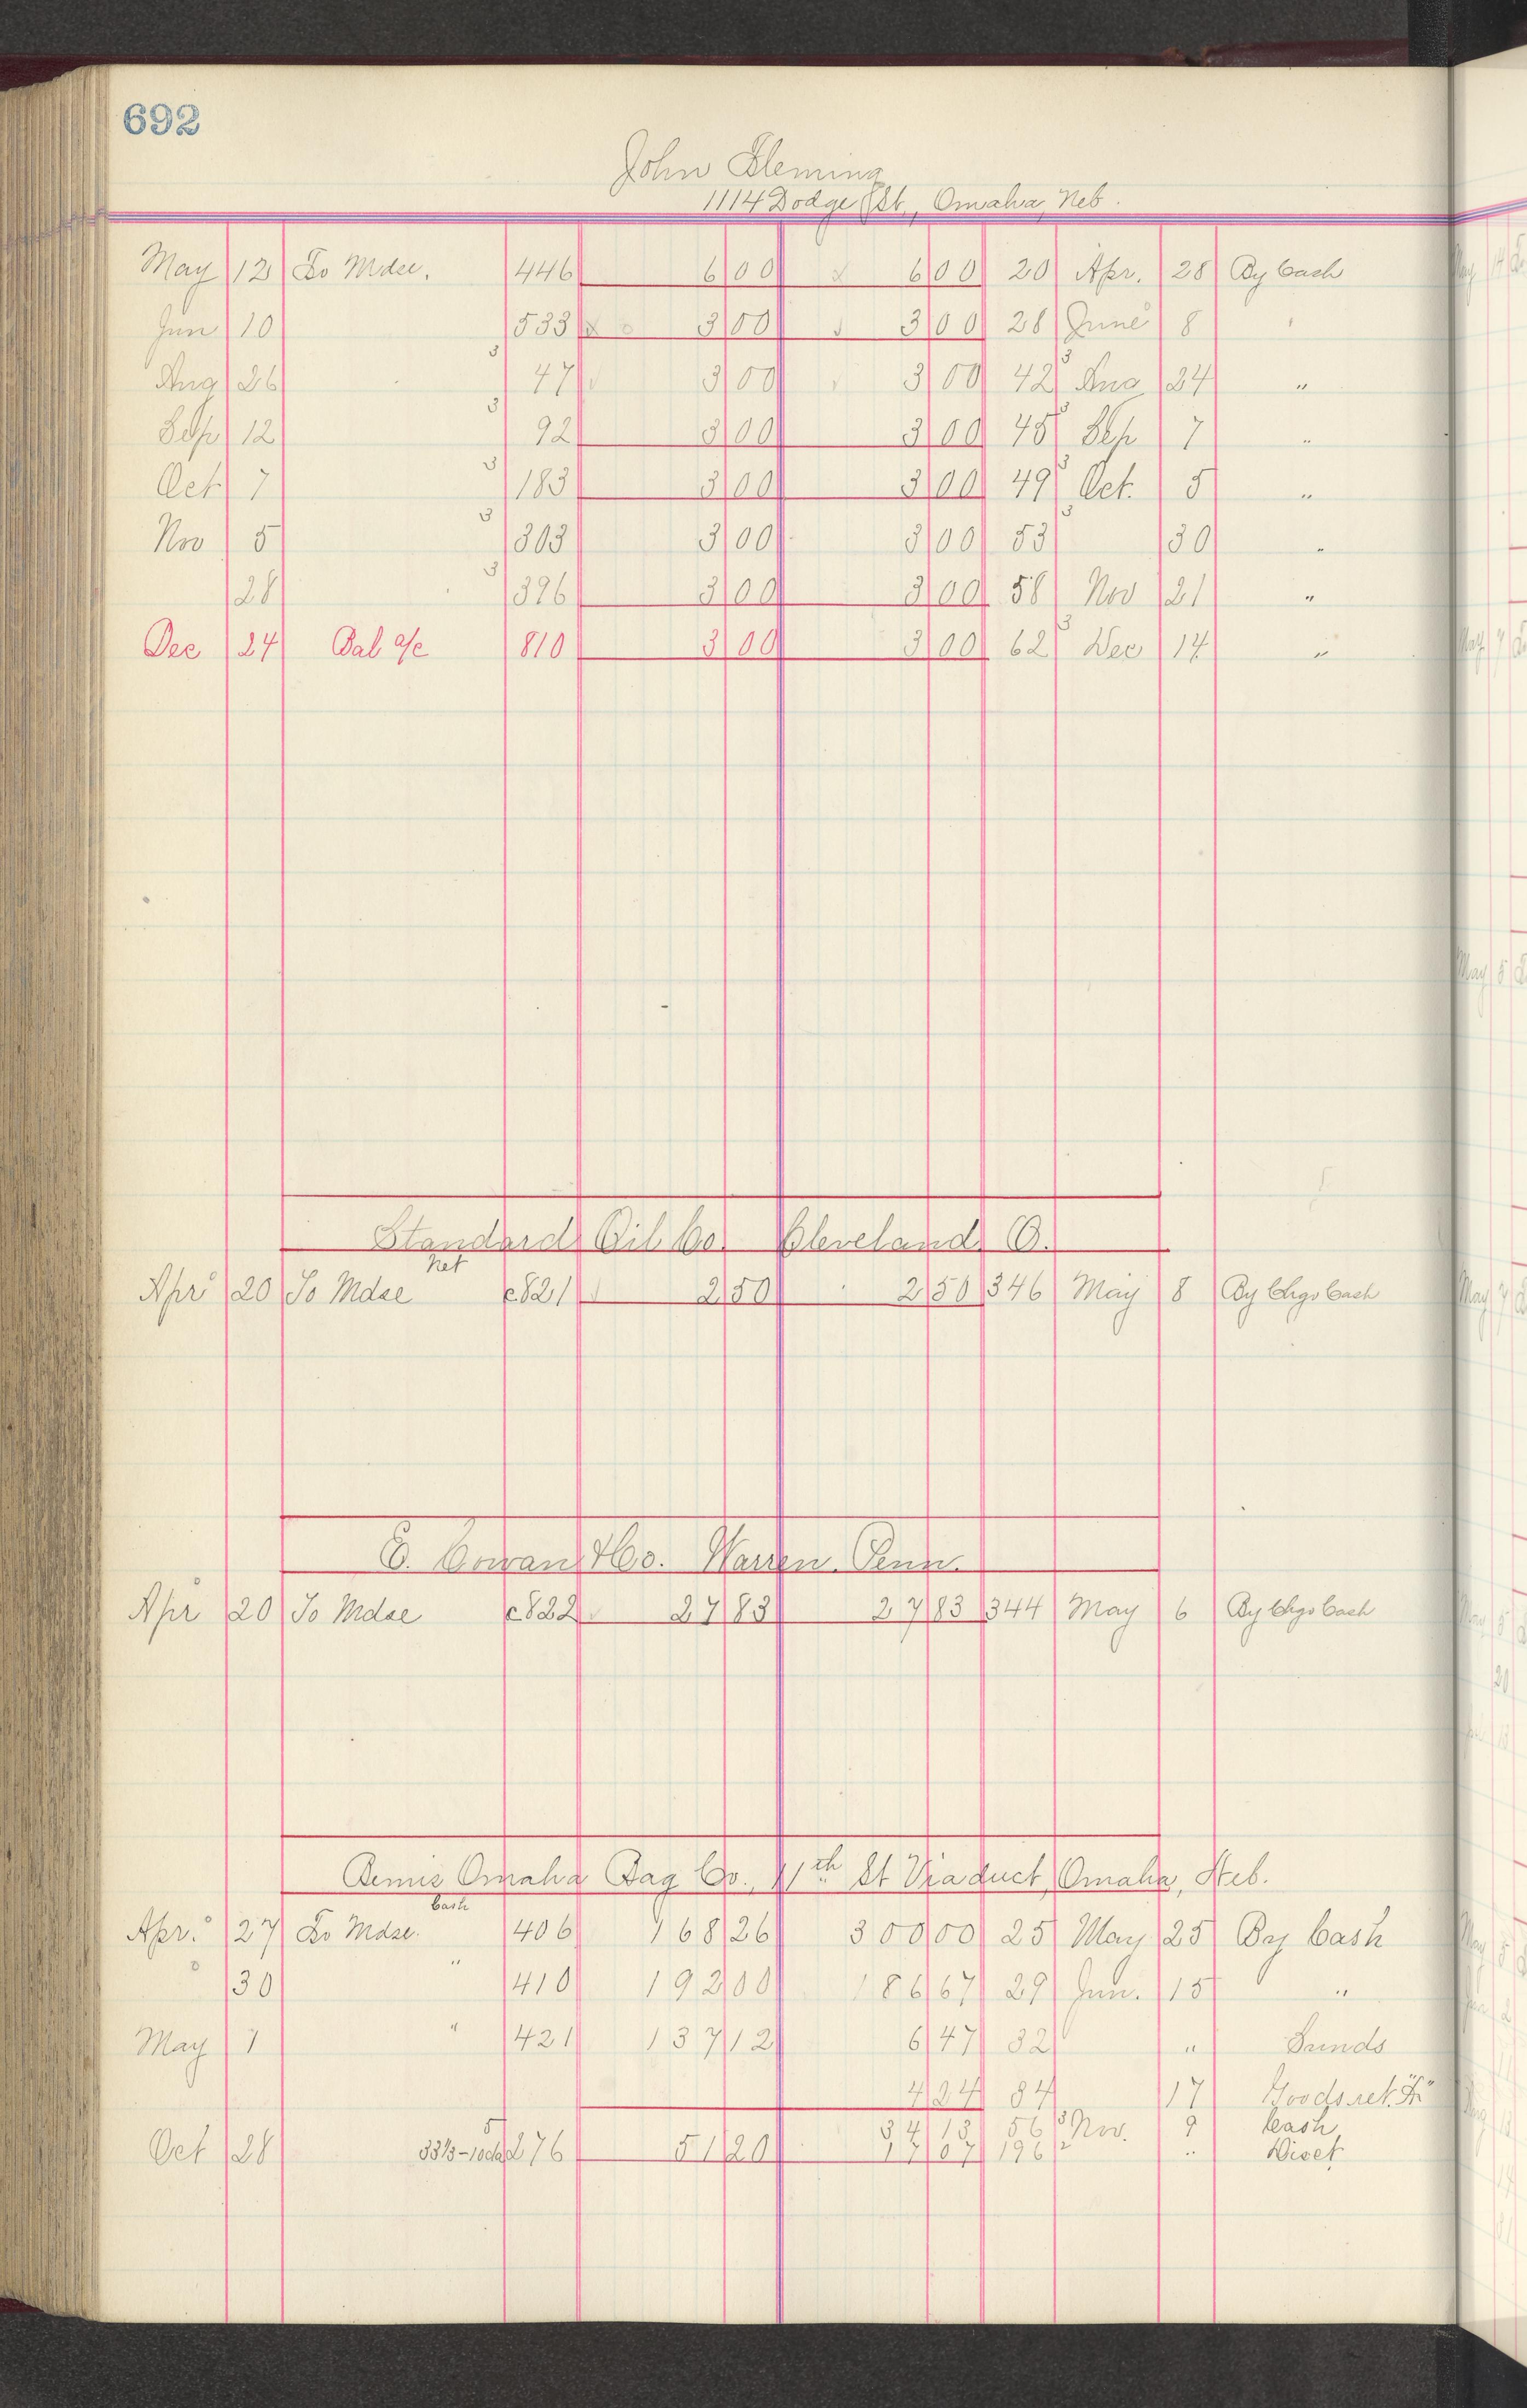 692
John Fleming
1114 Dodge St., Omaha, Neb.
May 12 To Mdse. 446 6 00 6 00 20 Apr. 28 By Cash
Jun 10 533 3 00 3 00 28 June 8
Aug 26 3 47 3 00 3 00 42 3 Aug 24 "
Sep 12 3 92 3 00 3 00 45 3 Sep 7 "
Oct 7 3 183 3 00 3 00 49 3 Oct. 5 "
Nov 5 3 303 3 00 3 00 53 3 30 "
28 3 396 3 00 3 00 58 Nov 21 "
Dec 24 Bal a/c 810 3 00 3 00 62 3 Dec 14 "
Standard Oil Co. Cleveland, O.
Net
Apr 20 To Mdse c821 2 50 2 50 346 May 8 By Chgo Cash
E. Cowan & Co. Warren, Penn.
Apr 20 To Mdse c822 27 83 27 83 344 May 6 By Chgo Cash
Bemis Omaha Bag Co., 11th St Viaduct, Omaha, Neb.
Cash
Apr. 27 To Mdse. 406 168 26 300 00 25 May 25 By Cash
30 " 410 192 00 186 67 29 Jun. 15 "
May 7 " 421 137 12 6 47 32 " Sunds
4 24 84 17 Goods ret.
34 13 56 3 Nov. 9 Cash
Oct 28 33⅓-10 5 276 51 20 17 07 196 2 " Disct